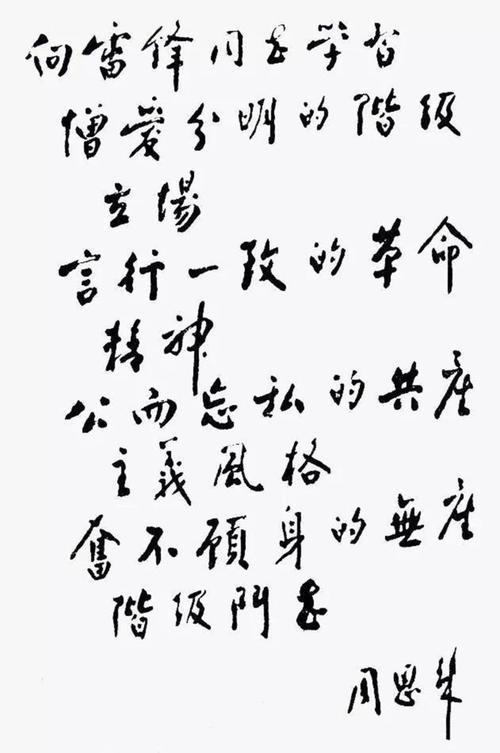 向雷锋同志学习
憎爱分明的階级
立場
言行一致的革命
精神
公而忘私的共产
主義風格
奮不顾身的無产
階级鬥志
周恩来